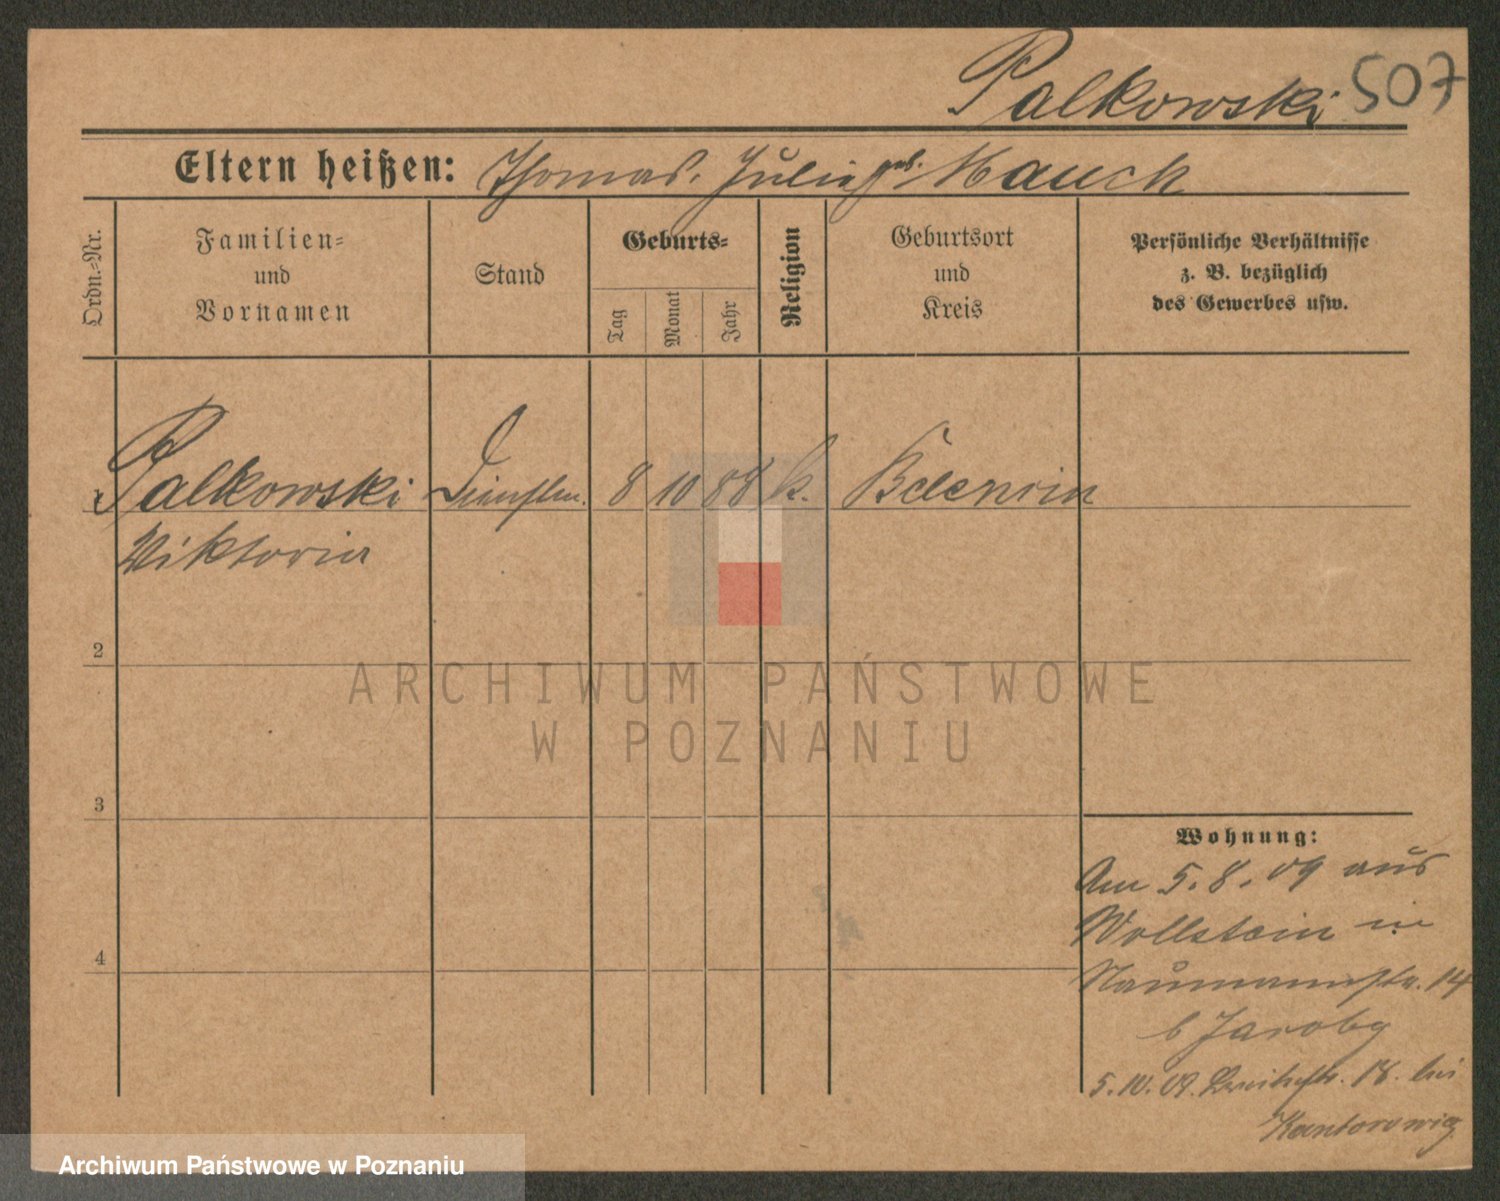 Palkowski 507
Eltern heißen: Thomas. Julia geb. Mauch
Ordn.-Nr.
Familien-
und
Vornamen
Stand
Geburts-
Tag
Monat
Jahr
Religion
Geburtsort
und
Kreis
Persönliche Verhältnisse
z. B. bezüglich
des Gewerbes usw.
Palkowski
8 10 88 k.
Viktoria
2
3
4
Wohnung:
Am 5.8.09 aus
Wollstein in
Naumannstr. 14
b
5.10.09. Breitestr. 18. bei
Kantorowicz
ARCHIWUM PAŃSTWOWE
W POZNANIU
Archiwum Państwowe w Poznaniu